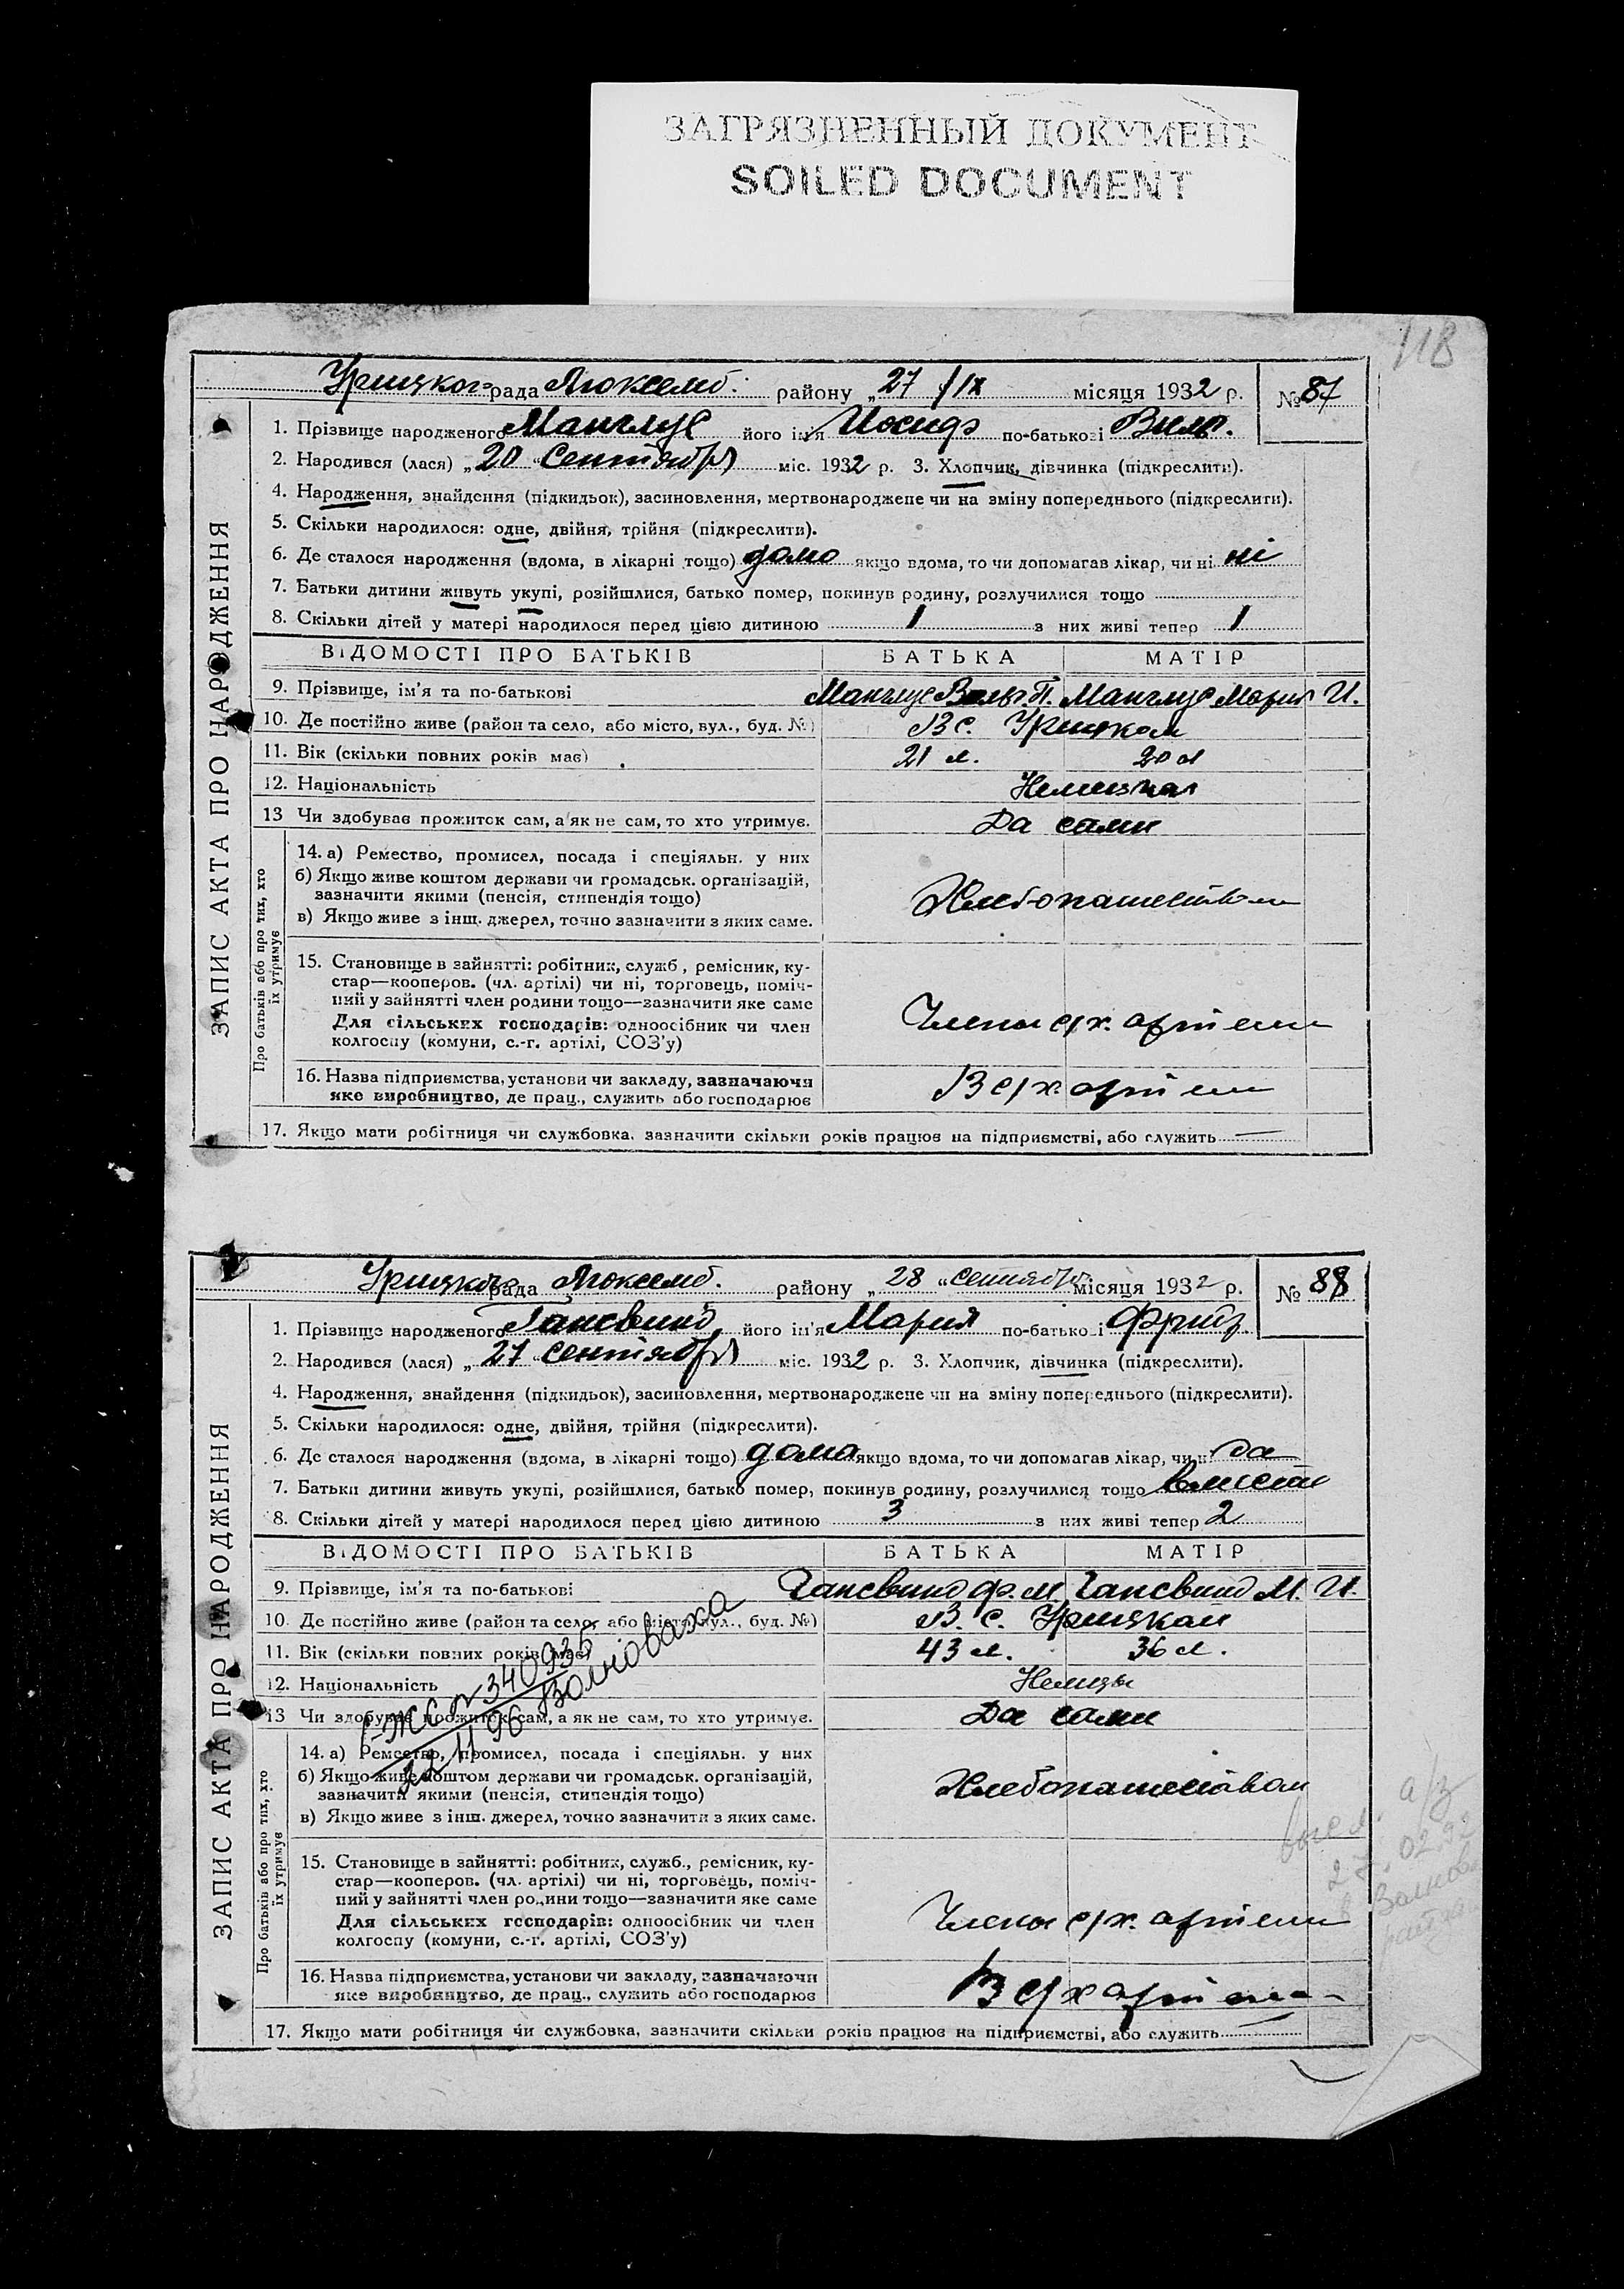 ЗАГРЯЗНЕННЫЙ ДОКУМЕНТ
SOILED DOCUMENT
118
Урицкого рада Люксемб. району „27 /IX місяця 1932 р. № 87
ЗАПИС АКТА ПРО НАРОДЖЕННЯ
1. Прізвище народженого Манглус його ім'я Иосиф по-батькові Вильг.
2. Народився (лася) „20 “ Сентября міс. 1932 р. 3. Хлопчик, дівчинка (підкреслити).
4. Народження, знайдення (підкидьок), засиновлення, мертвонароджене чи на зміну попереднього (підкреслити).
5. Скільки народилося: одне, двійня, трійня (підкреслити).
6. Де сталося народження (вдома, в лікарні тощо) дома якщо вдома, то чи допомагав лікар, чи ні ні
7. Батьки дитини живуть укупі, розійшлися, батько помер, покинув родину, розлучилися тощо
8. Скільки дітей у матері народилося перед цією дитиною 1 з них живі тепер 1
ВІДОМОСТІ ПРО БАТЬКІВ БАТЬКА МАТІР
9. Прізвище, ім'я та по-батькові Манглус Вильг. П. Манглус Мария И.
10. Де постійно живе (район та село, або місто, вул., буд. №) В с. Урицком
11. Вік (скільки повних років має) 21 л. 20 л
12. Національність Немецкая
13 Чи здобуває прожиток сам, а як не сам, то хто утримує. Да сами
Про батьків або про тих, хто їх утримує
14. а) Ремество, промисел, посада і спеціяльн. у них
б) Якщо живе коштом держави чи громадськ. організацій,
зазначити якими (пенсія, стипендія тощо)
в) Якщо живе з інш. джерел, точно зазначити з яких саме.
Хлебопашеством
15. Становище в зайнятті: робітник, служб., ремісник, ку-
стар—кооперов. (чл. артілі) чи ні, торговець, поміч-
ний у зайнятті член родини тощо—зазначити яке саме
Для сільських господарів: одноосібник чи член
колгоспу (комуни, с.-г. артілі, СОЗ'у)
Члены с/х. артели
16. Назва підприємства, установи чи закладу, зазначаючи
яке виробництво, де прац., служить або господарює
В с/х. артели
17. Якщо мати робітниця чи службовка, зазначити скільки років працює на підприємстві, або служить —
Урицкого рада Люксемб. району „28 “ сентября місяця 1932 р. № 88
ЗАПИС АКТА ПРО НАРОДЖЕННЯ
1. Прізвище народженого Гансвинд його ім'я Мария по-батькові Фритр
2. Народився (лася) „27 “ сентября міс. 1932 р. 3. Хлопчик, дівчинка (підкреслити).
4. Народження, знайдення (підкидьок), засиновлення, мертвонароджене чи на зміну попереднього (підкреслити).
5. Скільки народилося: одне, двійня, трійня (підкреслити).
6. Де сталося народження (вдома, в лікарні тощо) дома якщо вдома, то чи допомагав лікар, чи ні да
7. Батьки дитини живуть укупі, розійшлися, батько помер, покинув родину, розлучилися тощо вместе
8. Скільки дітей у матері народилося перед цією дитиною 3 з них живі тепер 2
ВІДОМОСТІ ПРО БАТЬКІВ БАТЬКА МАТІР
9. Прізвище, ім'я та по-батькові Гансвинд Ф. М. Гансвинд М. И.
10. Де постійно живе (район та село, або місто, вул., буд. №) В. с. Урицком
11. Вік (скільки повних років має) 43 л. 36 л.
12. Національність Немцы
13 Чи здобуває прожиток сам, а як не сам, то хто утримує. Да сами
I-ЖС № 340935
22 11 96 Волноваха
Про батьків або про тих, хто їх утримує
14. а) Ремество, промисел, посада і спеціяльн. у них
б) Якщо живе коштом держави чи громадськ. організацій,
зазначити якими (пенсія, стипендія тощо)
в) Якщо живе з інш. джерел, точно зазначити з яких саме.
Хлебопашеством
15. Становище в зайнятті: робітник, служб., ремісник, ку-
стар—кооперов. (чл. артілі) чи ні, торговець, поміч-
ний у зайнятті член родини тощо—зазначити яке саме
Для сільських господарів: одноосібник чи член
колгоспу (комуни, с.-г. артілі, СОЗ'у)
Члены с/х. артели
высл. а/з
27.02.92
в Волнов
16. Назва підприємства, установи чи закладу, зазначаючи
яке виробництво, де прац., служить або господарює
В с/х артели
17. Якщо мати робітниця чи службовка, зазначити скільки років працює на підприємстві, або служить —